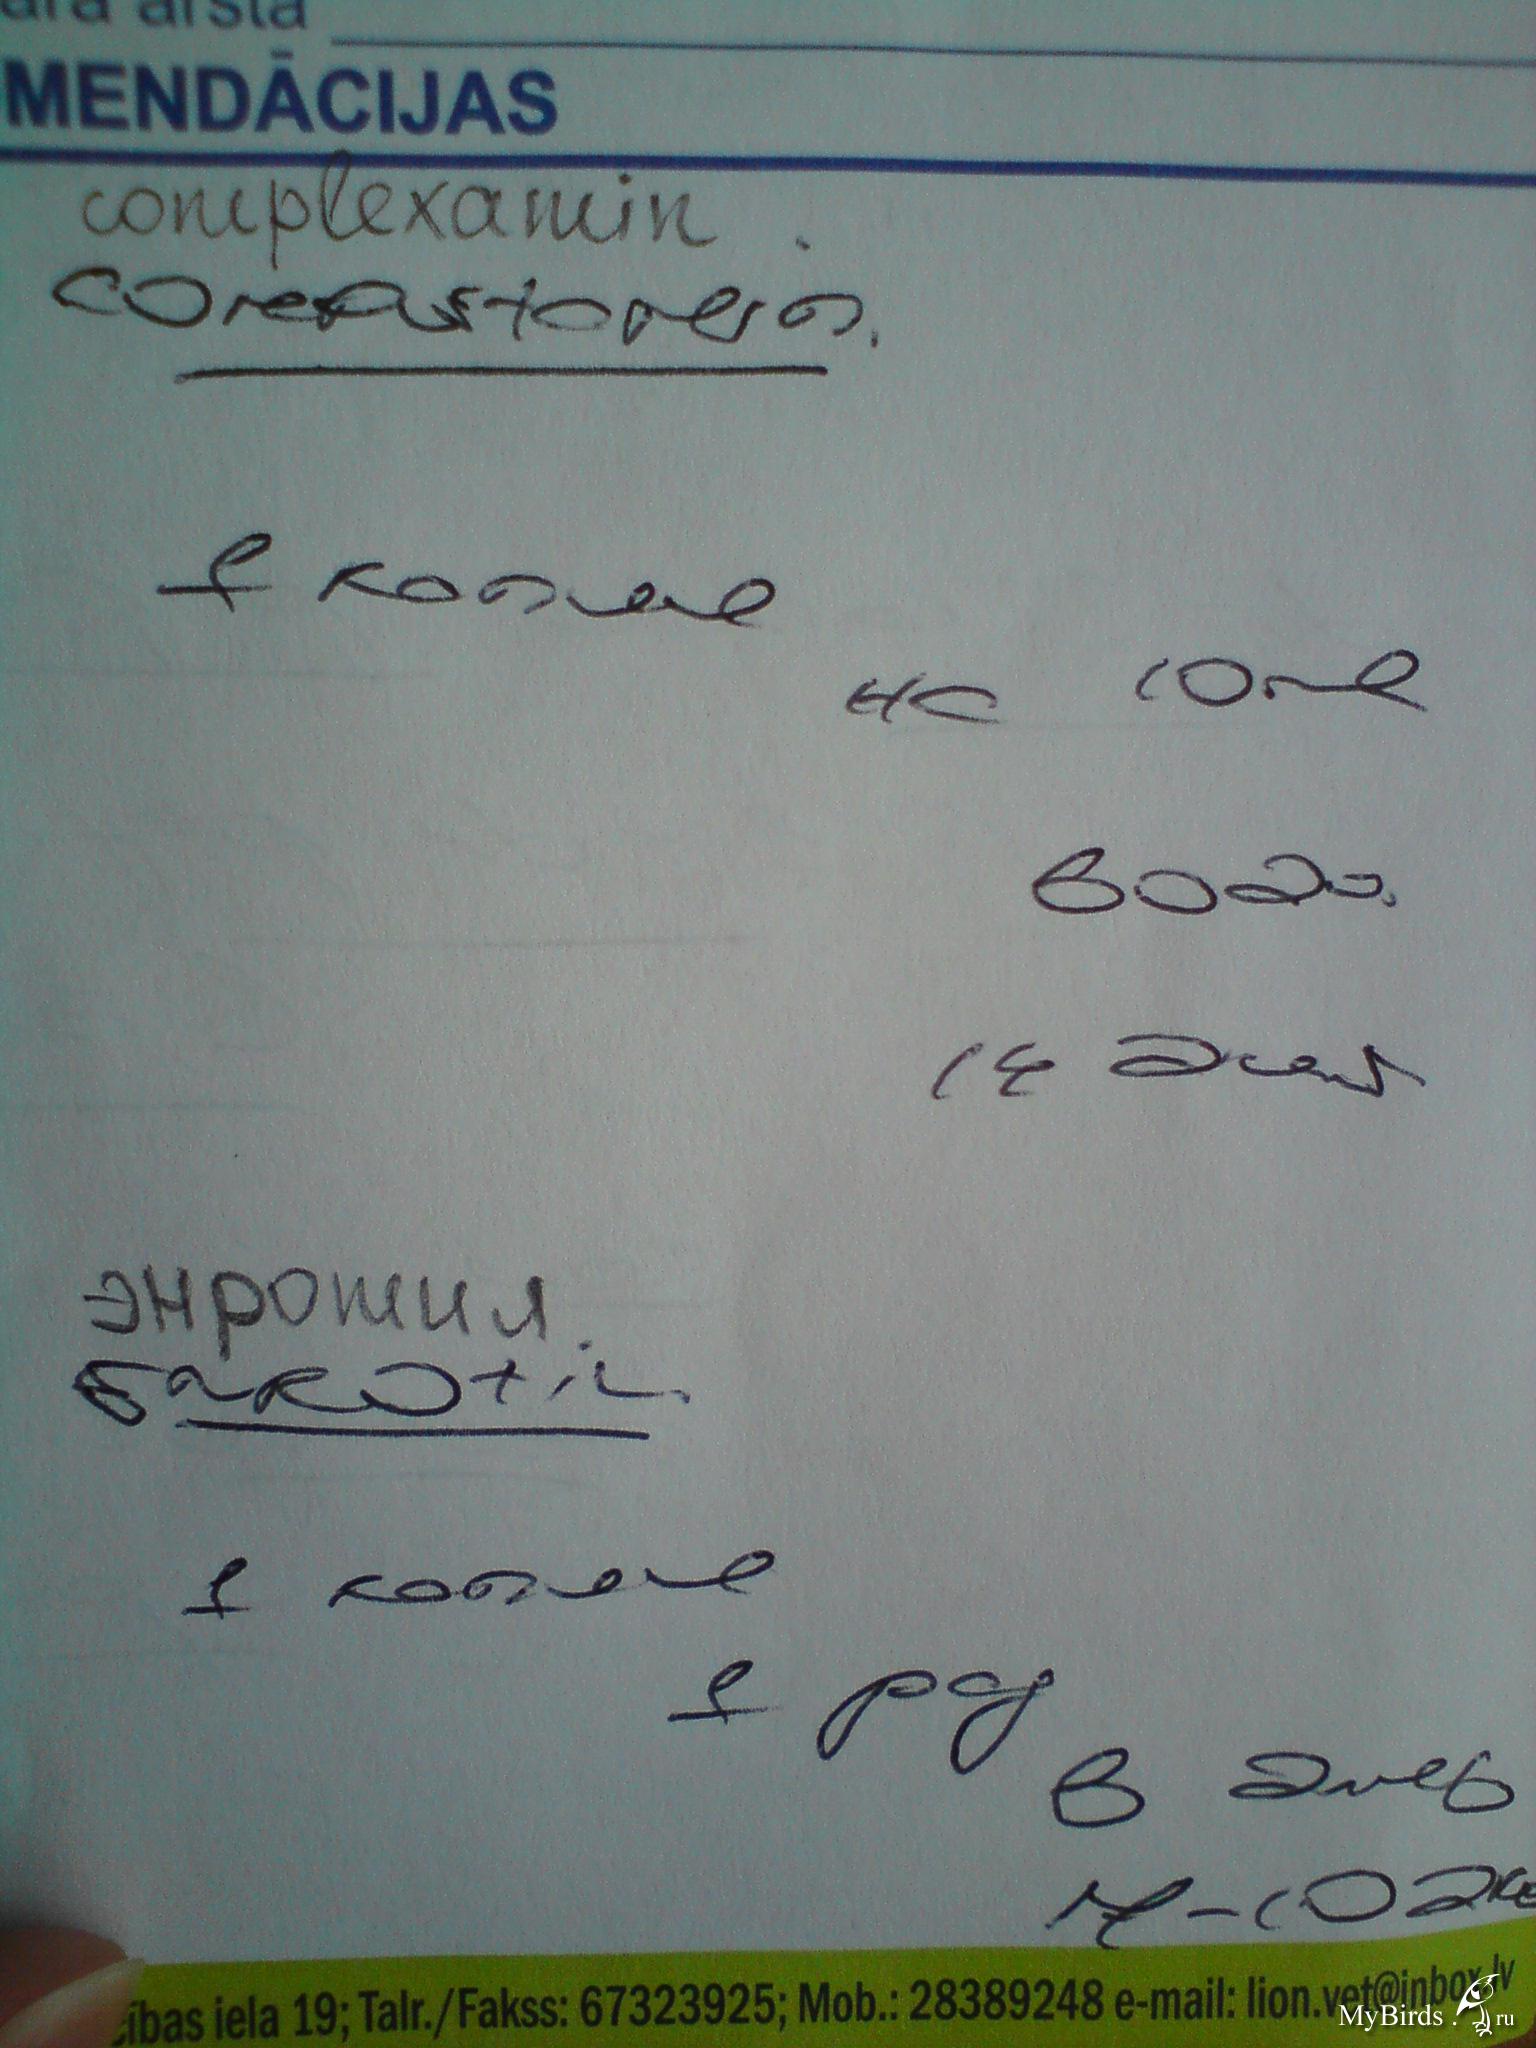 ara ārsta
MENDĀCIJAS
complexamin.
1 капля
на 10 мл
воды.
14 дней
энрожил.
1 капля
1 раз
в день
10 дне
ības iela 19; Talr./Fakss: 67323925; Mob.: 28389248 e-mail: lion.vet@inbox.lv
MyBirds.ru